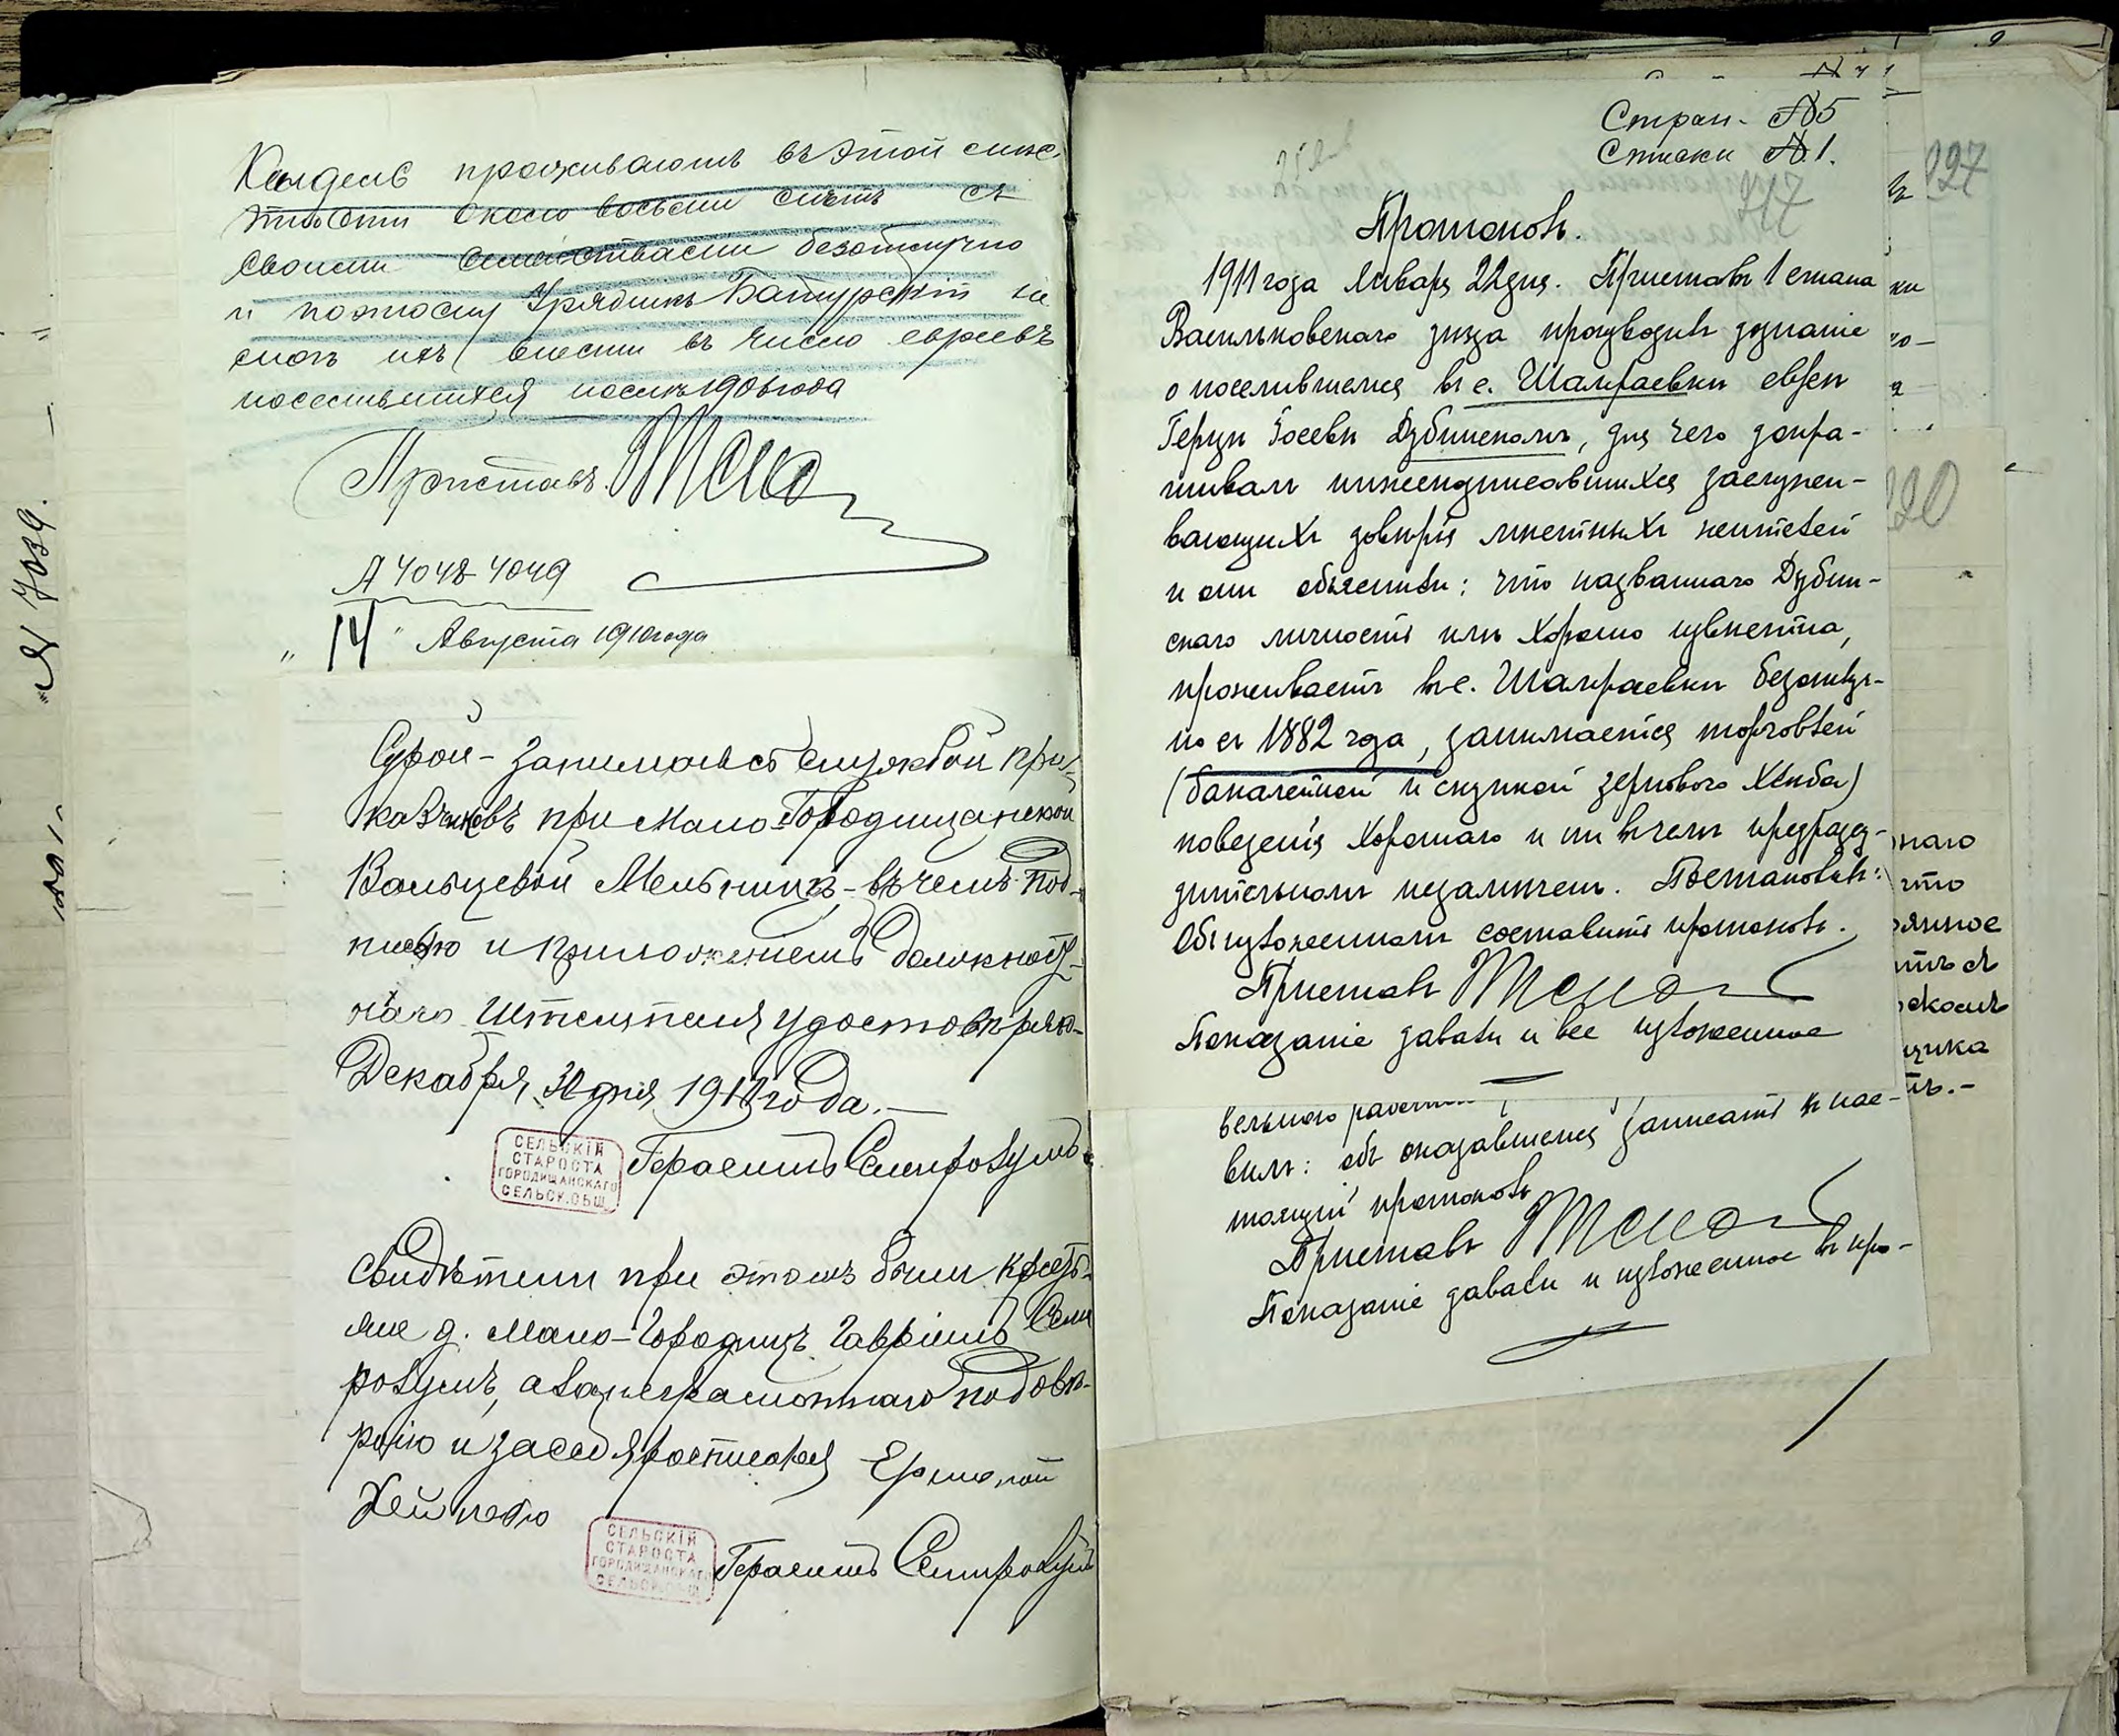 проживаютъ въ этой
около восьми лѣтъ съ
своими семействами безотлучно
и поэтому Урядникъ Батурскій не
могъ ихъ внести въ число евреевъ
поселившихся послѣ 1906 года
Приставъ
№ 4048-4049
"14" Августа 1910 года
занимался службой при-
казчиковъ при Мало-Городищанской
Вальцевой Мельницѣ, - въ чемъ под-
писью и приложеніемъ должност-
наго штемпеля удостовѣряю.-
Декабря 30 дня 191 года.—
СЕЛЬСКІЙ
СТАРОСТА
ГОРОДИЩАНСКАГО
СЕЛЬСК. ОБЩ.
Герасимъ Семирозумъ
Свидѣтели при этомъ были кресть-
яне д. Мало-Городищъ Гавріилъ Семи
розумъ, а за неграмотнаго по довѣ-
рію и за себя росписался
СЕЛЬСКІЙ
СТАРОСТА
ГОРОДИЩАНСКАГО
СЕЛЬСК. ОБЩ.
Герасимъ Семирозумъ
№ 7039.
Стран. № 5
Списки № 1.
217
Протоколъ.
1911 года Января 22 дня. Приставъ 1 стана
Васильковскаго уѣзда производилъ дознаніе
о поселившемся въ с. Шамраевкѣ евреѣ
Герцѣ Іосевѣ Дубинскомъ, для чего допра-
шивалъ нижеподписавшихся заслужи-
вающихъ довѣрія мѣстныхъ жителей
и они объяснили: что названнаго Дубин-
скаго личность имъ хорошо извѣстна,
проживаетъ въ с. Шамраевкѣ безотлуч-
но съ 1882 года, занимается торговлей
(бакалейной и скупкой зернового хлѣба)
поведенія хорошаго и ни въ чемъ предразсу-
дительномъ не замѣченъ. Постановилъ:
Объ изложенномъ составить протоколъ.
Приставъ
Показаніе давали и все изложенное
вилъ: объ оказавшемся записать въ нас-
тоящій протоколъ
Приставъ
Показаніе давали и изложенное въ про-
227
220
наго
что
оянное